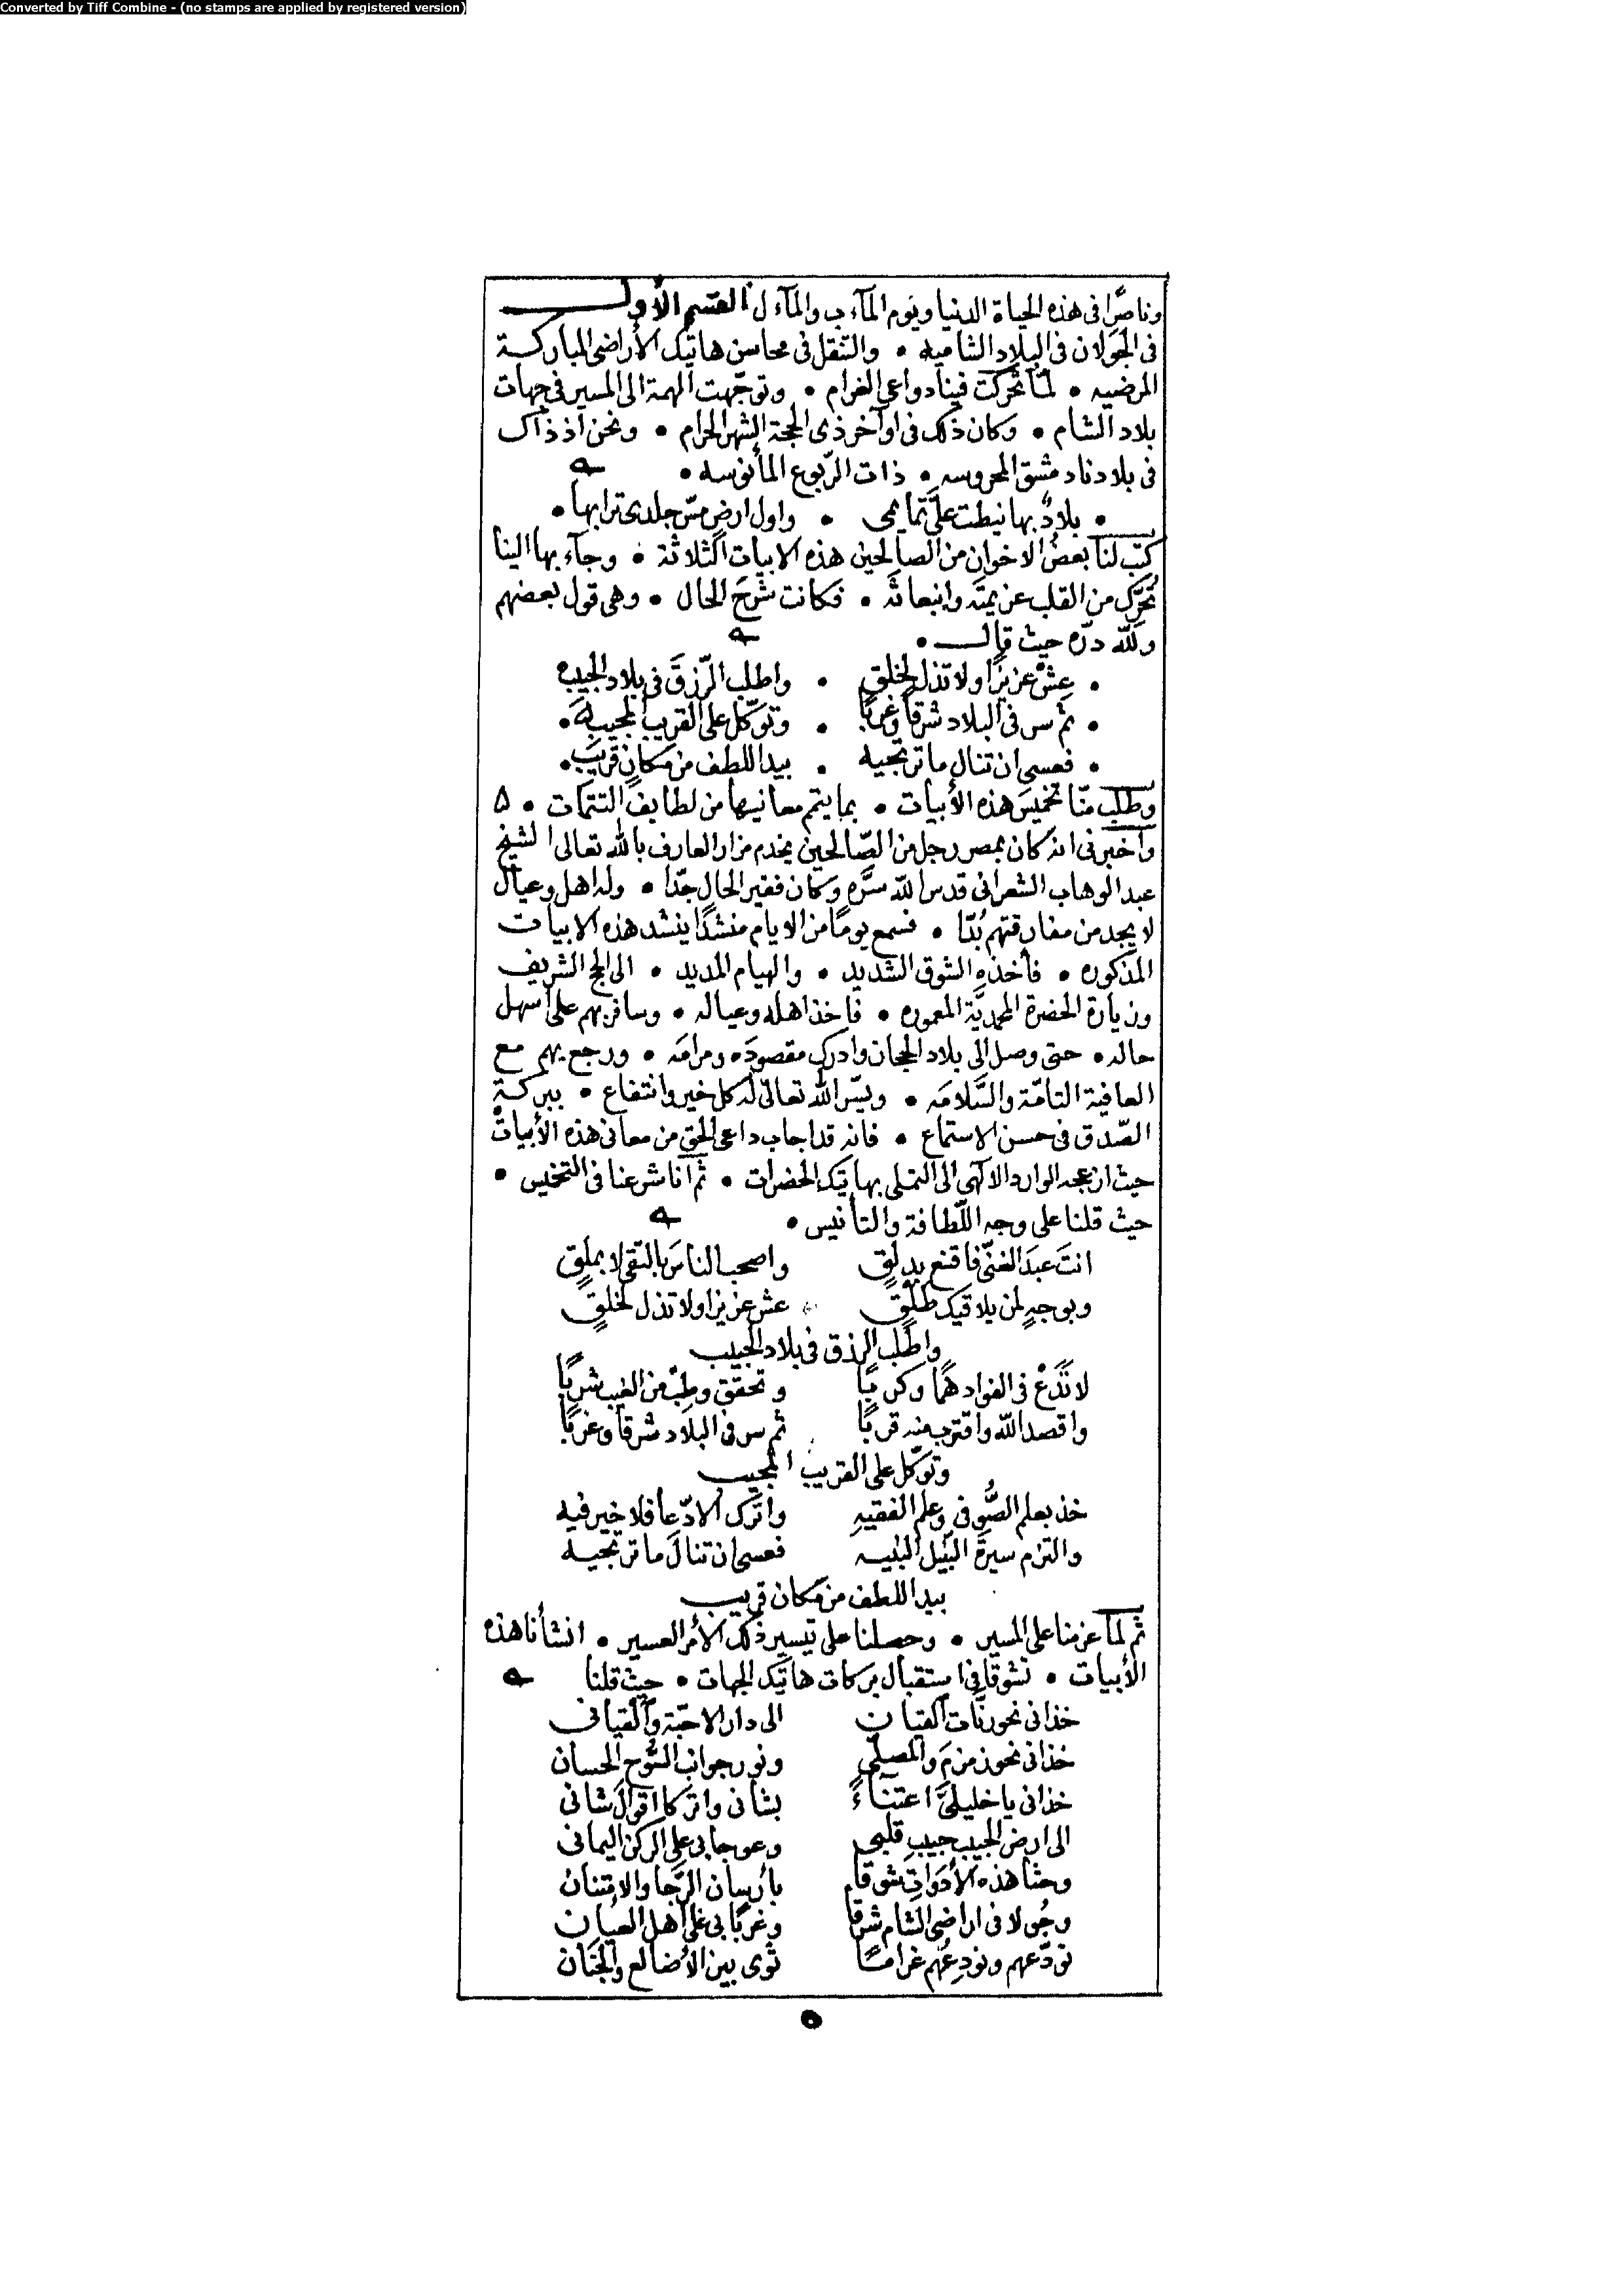 Converted by Tiff Combine - (no stamps are applied by registered version)
وناصرًا في هذه الحياة الدنيا ويوم المآب والمآل القسم الأول
في الجولان في البلاد الشاميه • والتنقل في محاسن هاتيك الأراضي المباركة
المرضيه • لمّا تحركت فينا دواعي الغرام • وتوجّهت الهمة الى المسير في جهات
بلاد الشام • وكان ذلك في اواخر ذي الحجة الشهر الحرام • ونحن اذ ذاك
في بلادنا دمشق المحروسه • ذات الرّبوع المأنوسه •
• بلادٌ بها نيطت عليّ تمايمي • واول ارضٍ مسّ جلدي ترابها •
كتب لنا بعضُ الاخوان من الصالحين هذه الابيات الثلاثة • وجآء بها الينا
تُحرّك من القلب عزيمتَه وانبعاثَه • فكانت شرحَ الحال • وهي قول بعضهم
ولله درّه حيث قال •
• عِشْ عزيزًا ولا تذلَّ لخلقٍ • واطلب الرّزقَ في بلاد الحبيب
• ثم سر في البلاد شرقًا وغربًا • وتوكّل على القريب المجيب •
• فعسى ان تنال ما ترتجيه • بيد اللطف من مكانٍ قريب •
وطلب منّا تخميسَ هذه الأبيات • بما يتم معانيها من لطايف التتمات •
واخبرني انه كان بمصر رجل من الصّالحين يخدم مزار العارف بالله تعالى الشيخ
عبد الوهاب الشعراني قدس الله سرّه وكان فقير الحال جدّا • وله اهل وعيال
لا يجد من مفارقتهم بُدّا • فسمع يومًا من الايام منشدًا ينشد هذه الابيات
المذكوره • فأخذه الشوق الشديد • والهيام المديد • الى الحج الشريف
وزيارة الحضرة المحمديّة المعموره • فاخذ اهله وعياله • وسافر بهم على اسهل
حاله • حتى وصل الى بلاد الحجاز وادرك مقصودَه ومرامَه • ورجع بهم مع
العافية التامّة والسَّلامه • ويسّر الله تعالى له كل خير وانتفاع • ببركة
الصّدق في حسن الاستماع • فانه قد اجاب داعي الحق من معاني هذه الأبيات
حيث ازعجه الوارد الالٓهي الى التملي بهاتيك الحضرات • ثم انا شرعنا في التخميس •
حيث قلنا على وجه اللّطافة والتأنيس •
انتَ عبدَ الغنيّ فاقنع بدلقٍ واصحب الناسَ بالتّقى لا بملقٍ
وبوجهٍ لمن يلاقيك طلقٍ عش عزيزا ولا تذل لخلقٍ
واطلب الرزق في بلاد الحبيب
لا تَدَعْ في الفواد همًّا وكربًا وتحقق وطِبْ من الغيب شربًا
واقصد الله واقترب منه قربًا ثم سر في البلاد شرقًا وغربًا
وتوكّل على القريب المجيب
خذ بعلم الصُّوفي وعلم الفقيهِ واترك الادّعا فلا خير فيه
والتزم سيرةَ النبيل النبيه فعسى ان تنالَ ما ترتجيه
بيد اللطف من مكان قريب
ثم لمّا عزمنا على المسير • وحصلنا على تيسير ذلك الأمر العسير • انشأنا هذه
الأبيات • تشوقا في استقبال بركات هاتيك الجهات • حيث قلنا
خذاني نحو رنّات القيان الى دار الاحبّة والقياني
خذاني نحو زمزمَ والمصلّى ونور جوانب السُّوح الحسان
خذاني يا خليليَّ اعتناءً بشاني واتركا اقوالَ شاني
الى ارض الحبيب حبيبِ قلبي وعوجا بي على الركن اليماني
وحثا هذه الأدوات شوقا بأرسان الرَّجا والامتنان
وجُولا في اراضي الشام شرقا وغربًا بي على اهل العيان
نودّعهم ونودِعُهم غرامًا ثوى بين الأضالع والجَنان
٥